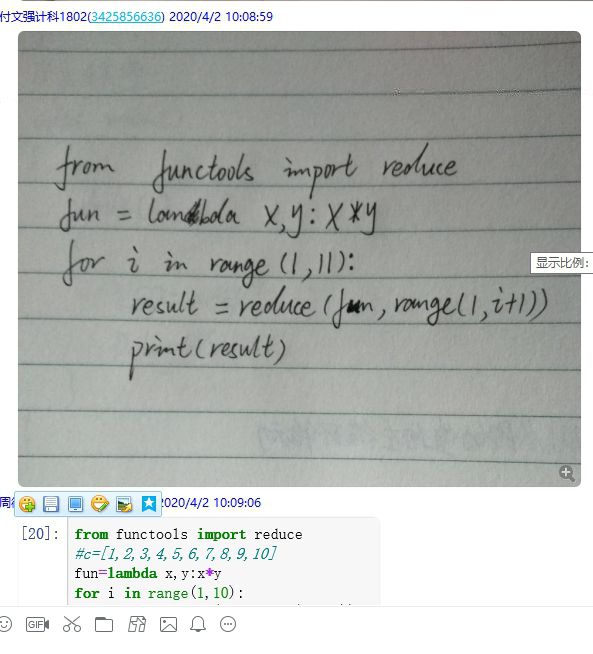 付文强计科1802(3425856636) 2020/4/2 10:08:59
from functools import reduce
fun = lambda x,y: x*y
for i in range (1,11):
result = reduce (fun, range(1,i+1))
print(result)
显示比例:
2020/4/2 10:09:06
[20]:
from functools import reduce
#c=[1,2,3,4,5,6,7,8,9,10]
fun=lambda x,y:x*y
for i in range(1,10):
GIF